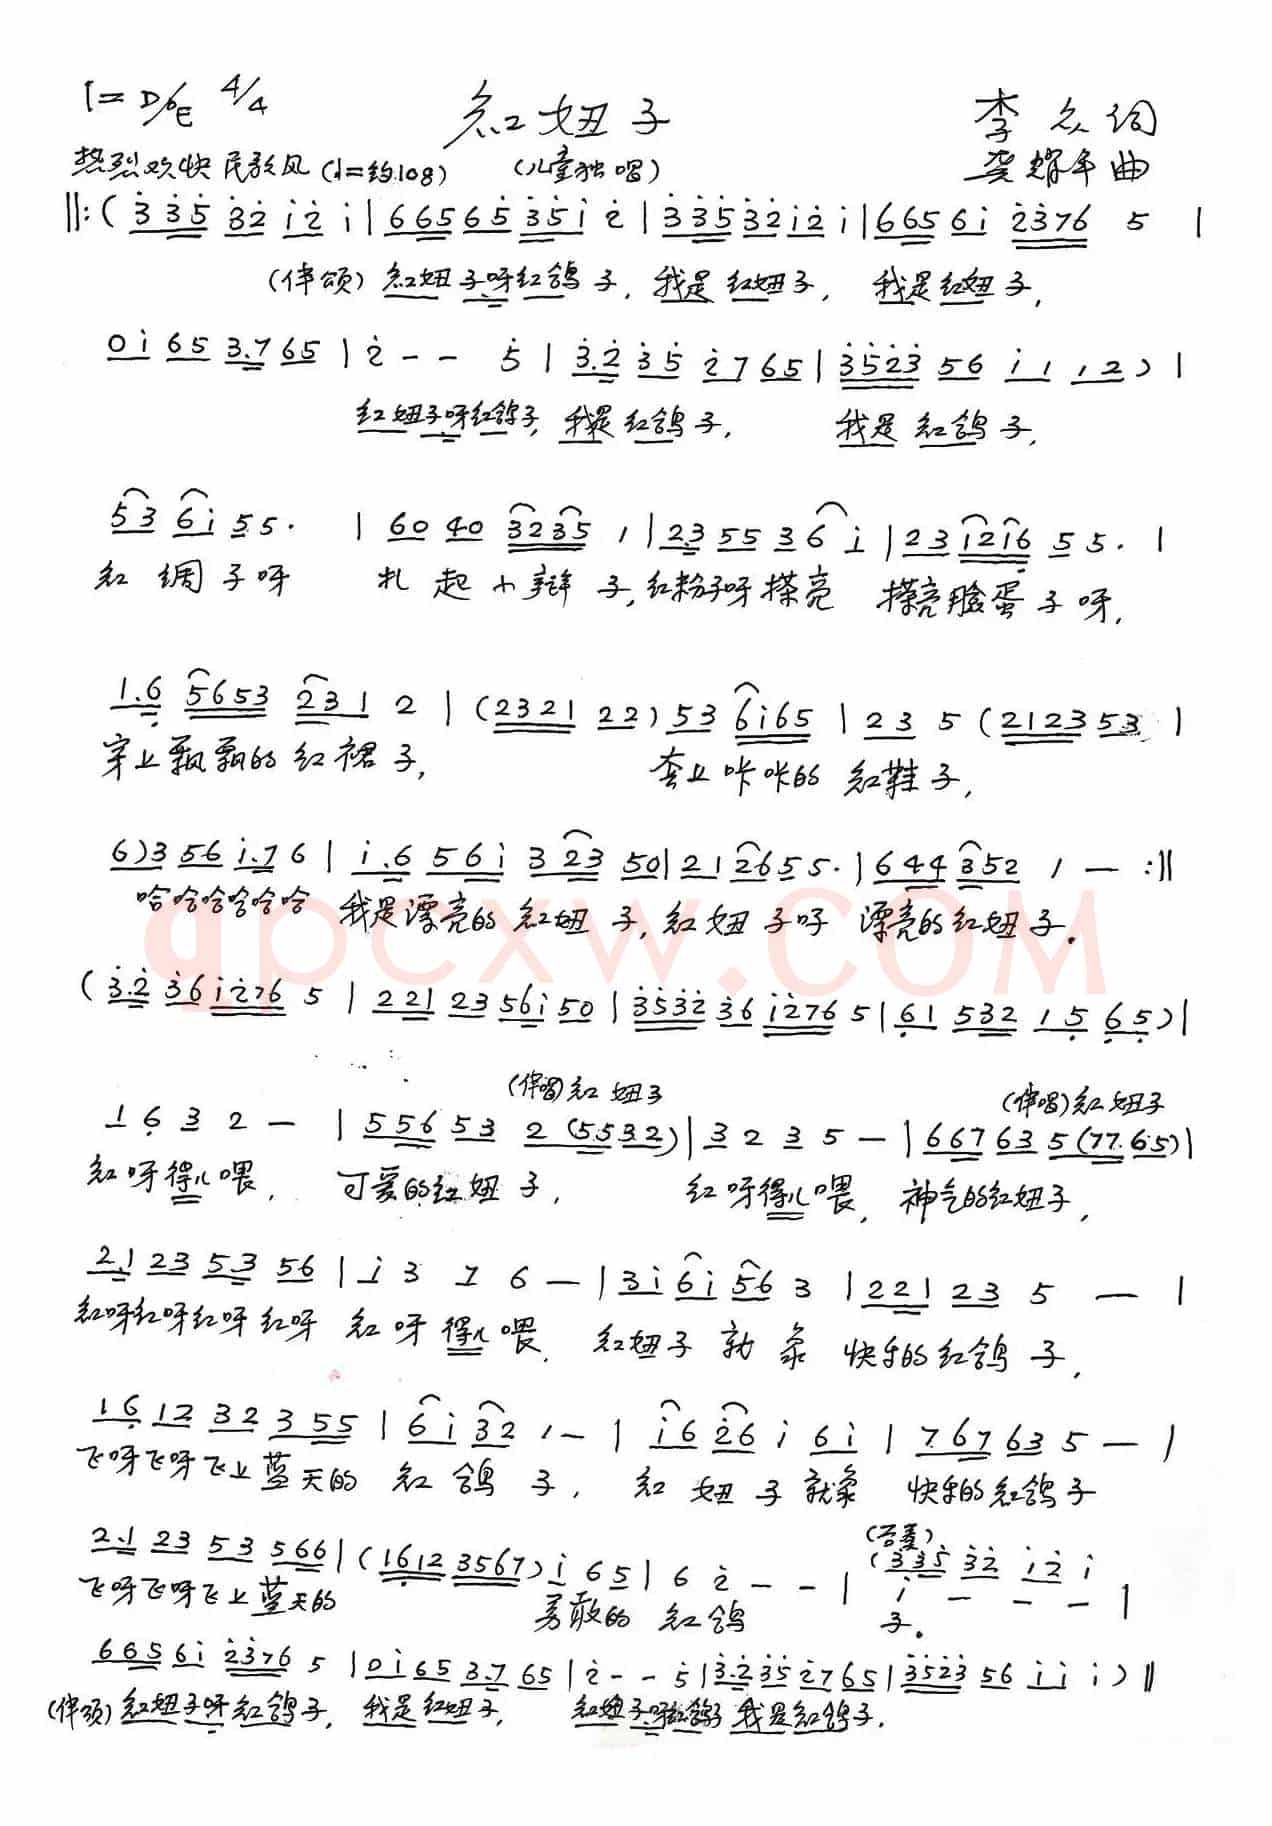 1=D/bE 4/4 红妞子 李众词
热烈欢快 民歌风 (♩=约108) (儿童独唱) 龚耀年曲
‖:( 3 35 32 12 1 | 665 65 351 2 | 335 32 12 1 | 665 61 2376 5 |
(伴颂) 红妞子呀红鸽子, 我是红妞子, 我是红妞子,
01 65 3.7 65 | 2 - - 5 | 3.2 35 27 65 | 3523 56 11 12 ) |
红妞子呀红鸽子, 我是红鸽子, 我是红鸽子,
53 61 55. | 60 40 3235 1 | 23 55 36 1 | 23 1216 55. |
红绸子呀 扎起小辫子, 红粉子呀搽亮 搽亮脸蛋子呀,
1.6 5653 231 2 | (2321 22) 53 6165 | 23 5 (2123 53 |
穿上飘飘的红裙子, 套上咔咔的红鞋子,
6)3 56 1.7 6 | 1.6 561 323 50 | 21 2655. | 644 352 1 — :‖
哈哈哈哈哈哈 我是漂亮的红妞子, 红妞子呀 漂亮的红妞子.
qpcxw.com
(3.2 36 1276 5 | 221 23 561 50 | 3532 36 1276 5 | 61 532 15 65) |
(伴唱)红妞子 (伴唱)红妞子
1632 — | 556 53 2 (5532) | 3235 — | 667 63 5 (77.65) |
红呀得儿喂, 可爱的红妞子, 红呀得儿喂, 神气的红妞子,
2.1 23 5.3 56 | 1 3 7 6 — | 31 61 56 3 | 221 23 5 — |
红呀红呀红呀红呀 红呀得儿喂, 红妞子就象 快乐的红鸽子,
16 12 32 355 | 61 32 1 — | 16 26 1 61 | 767 63 5 — |
飞呀飞呀飞上蓝天的 红鸽子, 红妞子就象 快乐的红鸽子
2.1 23 53 566 | (1612 3567) 1 65 | 6 2 - - | (335 32 12 1
1 - - - |
飞呀飞呀飞上蓝天的 勇敢的 红鸽 子.
665 61 2376 5 | 01 65 3.7 65 | 2 - - 5 | 3.2 35 27 65 | 3523 56 11 1) ‖
(伴颂) 红妞子呀红鸽子, 我是红妞子, 红妞子呀红鸽子 我是红鸽子.